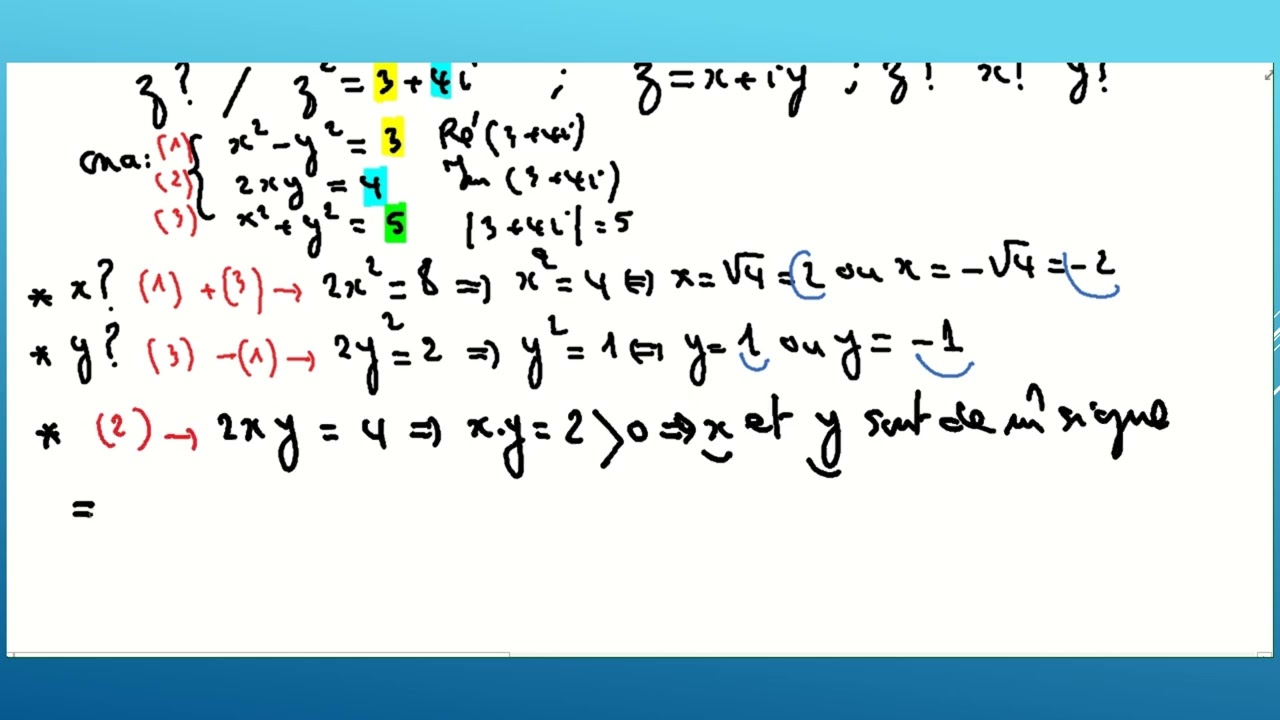 z? / z² = 3 + 4i ; z = x + iy ; z? x? y?
(1) x² - y² = 3 Ré(3+4i)
ona: (2) 2xy = 4 Im(3+4i)
(3) x² + y² = 5 |3+4i| = 5
* x? (1) + (3) → 2x² = 8 ⇒ x² = 4 ⇔ x = √4 = 2 ou x = -√4 = -2
* y? (3) - (1) → 2y² = 2 ⇒ y² = 1 ⇔ y = 1 ou y = -1
* (2) → 2xy = 4 ⇒ x.y = 2 > 0 ⇒ x et y sont de m̂ signe
=